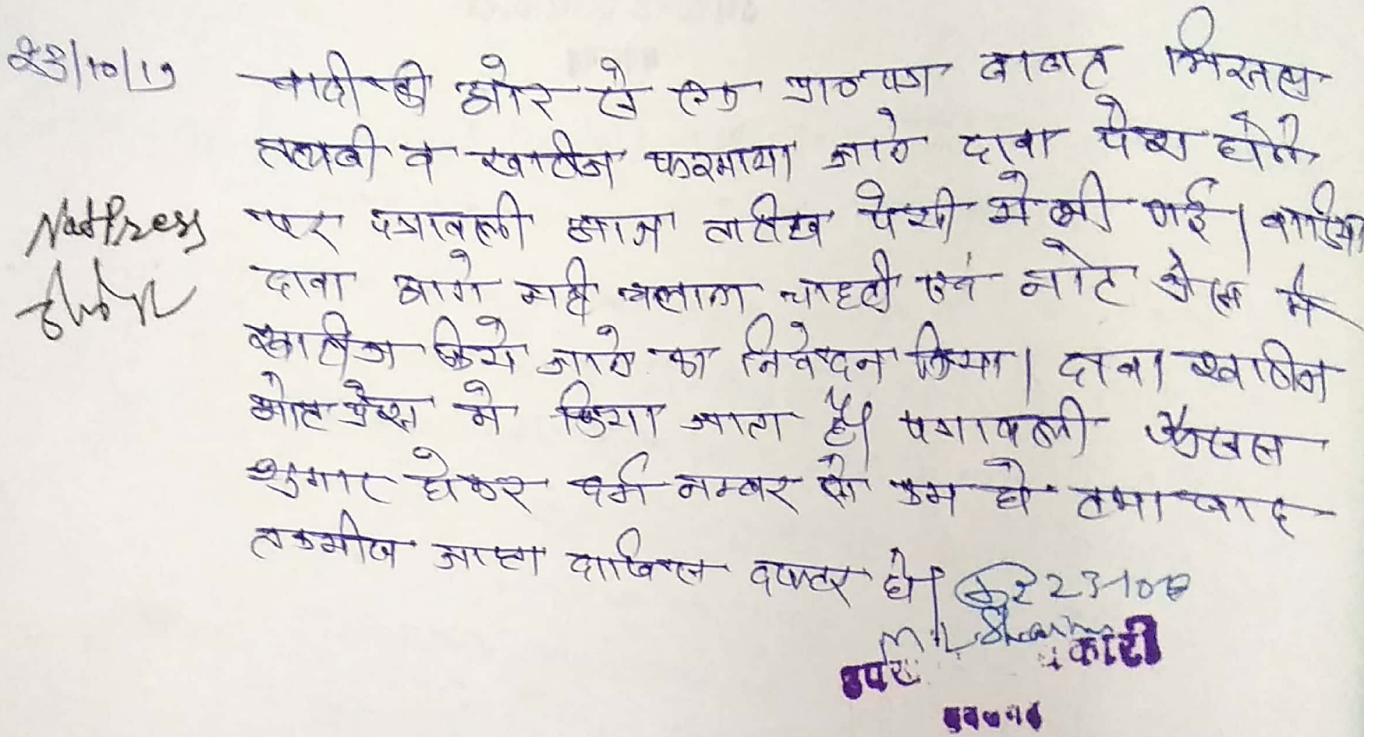 23/10/19
वादी की ओर से एक प्रा०पत्र बाबत मिसल
तलबी व खारीज फरमाया जावे दावा पेश होने
पर पत्रावली आज तारीख पेशी में ली गई। वादिया
Not Press
दावा आगे नही चलाना चाहती एवं नोट प्रेस में
खारीज किये जावे का निवेदन किया। दावा खारीज
नोट प्रेस में किया जाता है। पत्रावली फैसल
शुमार होकर दर्ज नम्बर से कम हो तथा बाद
तकमील जाप्ता दाखिल दफ्तर हो।
M L Sharma
कारी